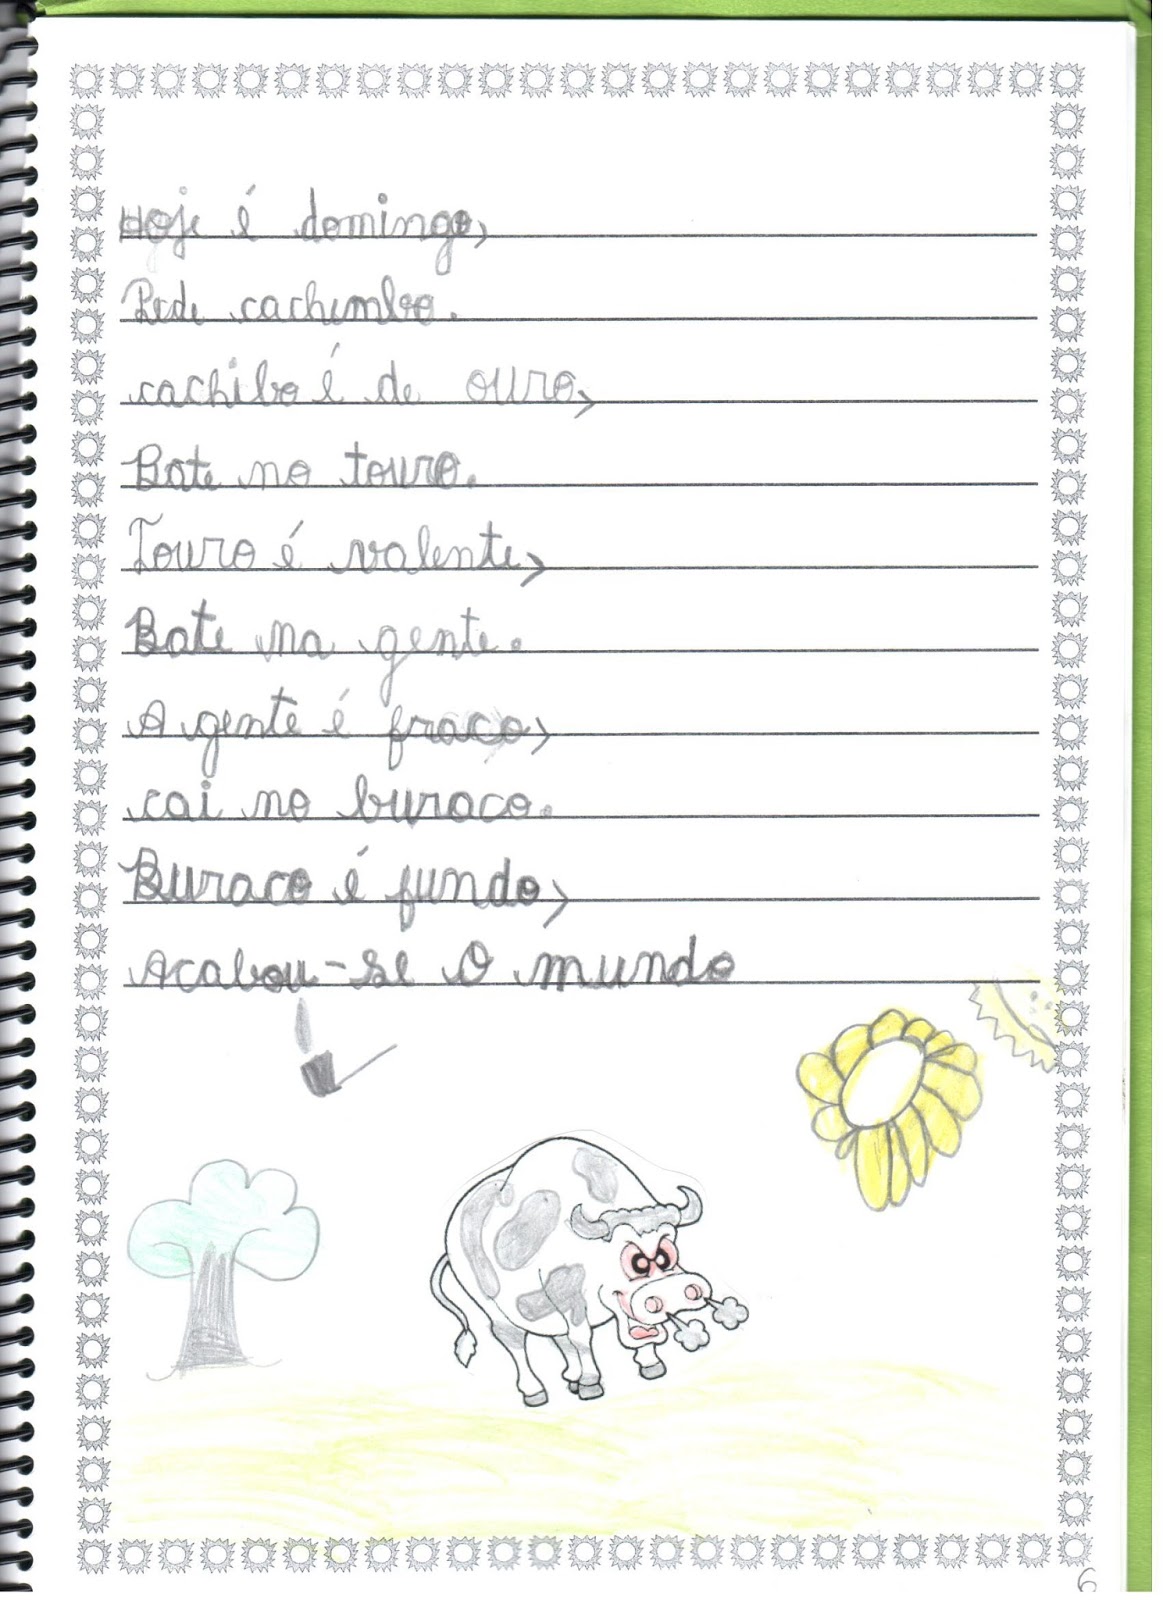 Hoje é domingo,
Pede cachimbo.
cachibo é de ouro,
Bate no touro.
Touro é valente,
Bate na gente.
A gente é fraco,
cai no buraco.
Buraco é fundo,
Acabou-se o mundo
6